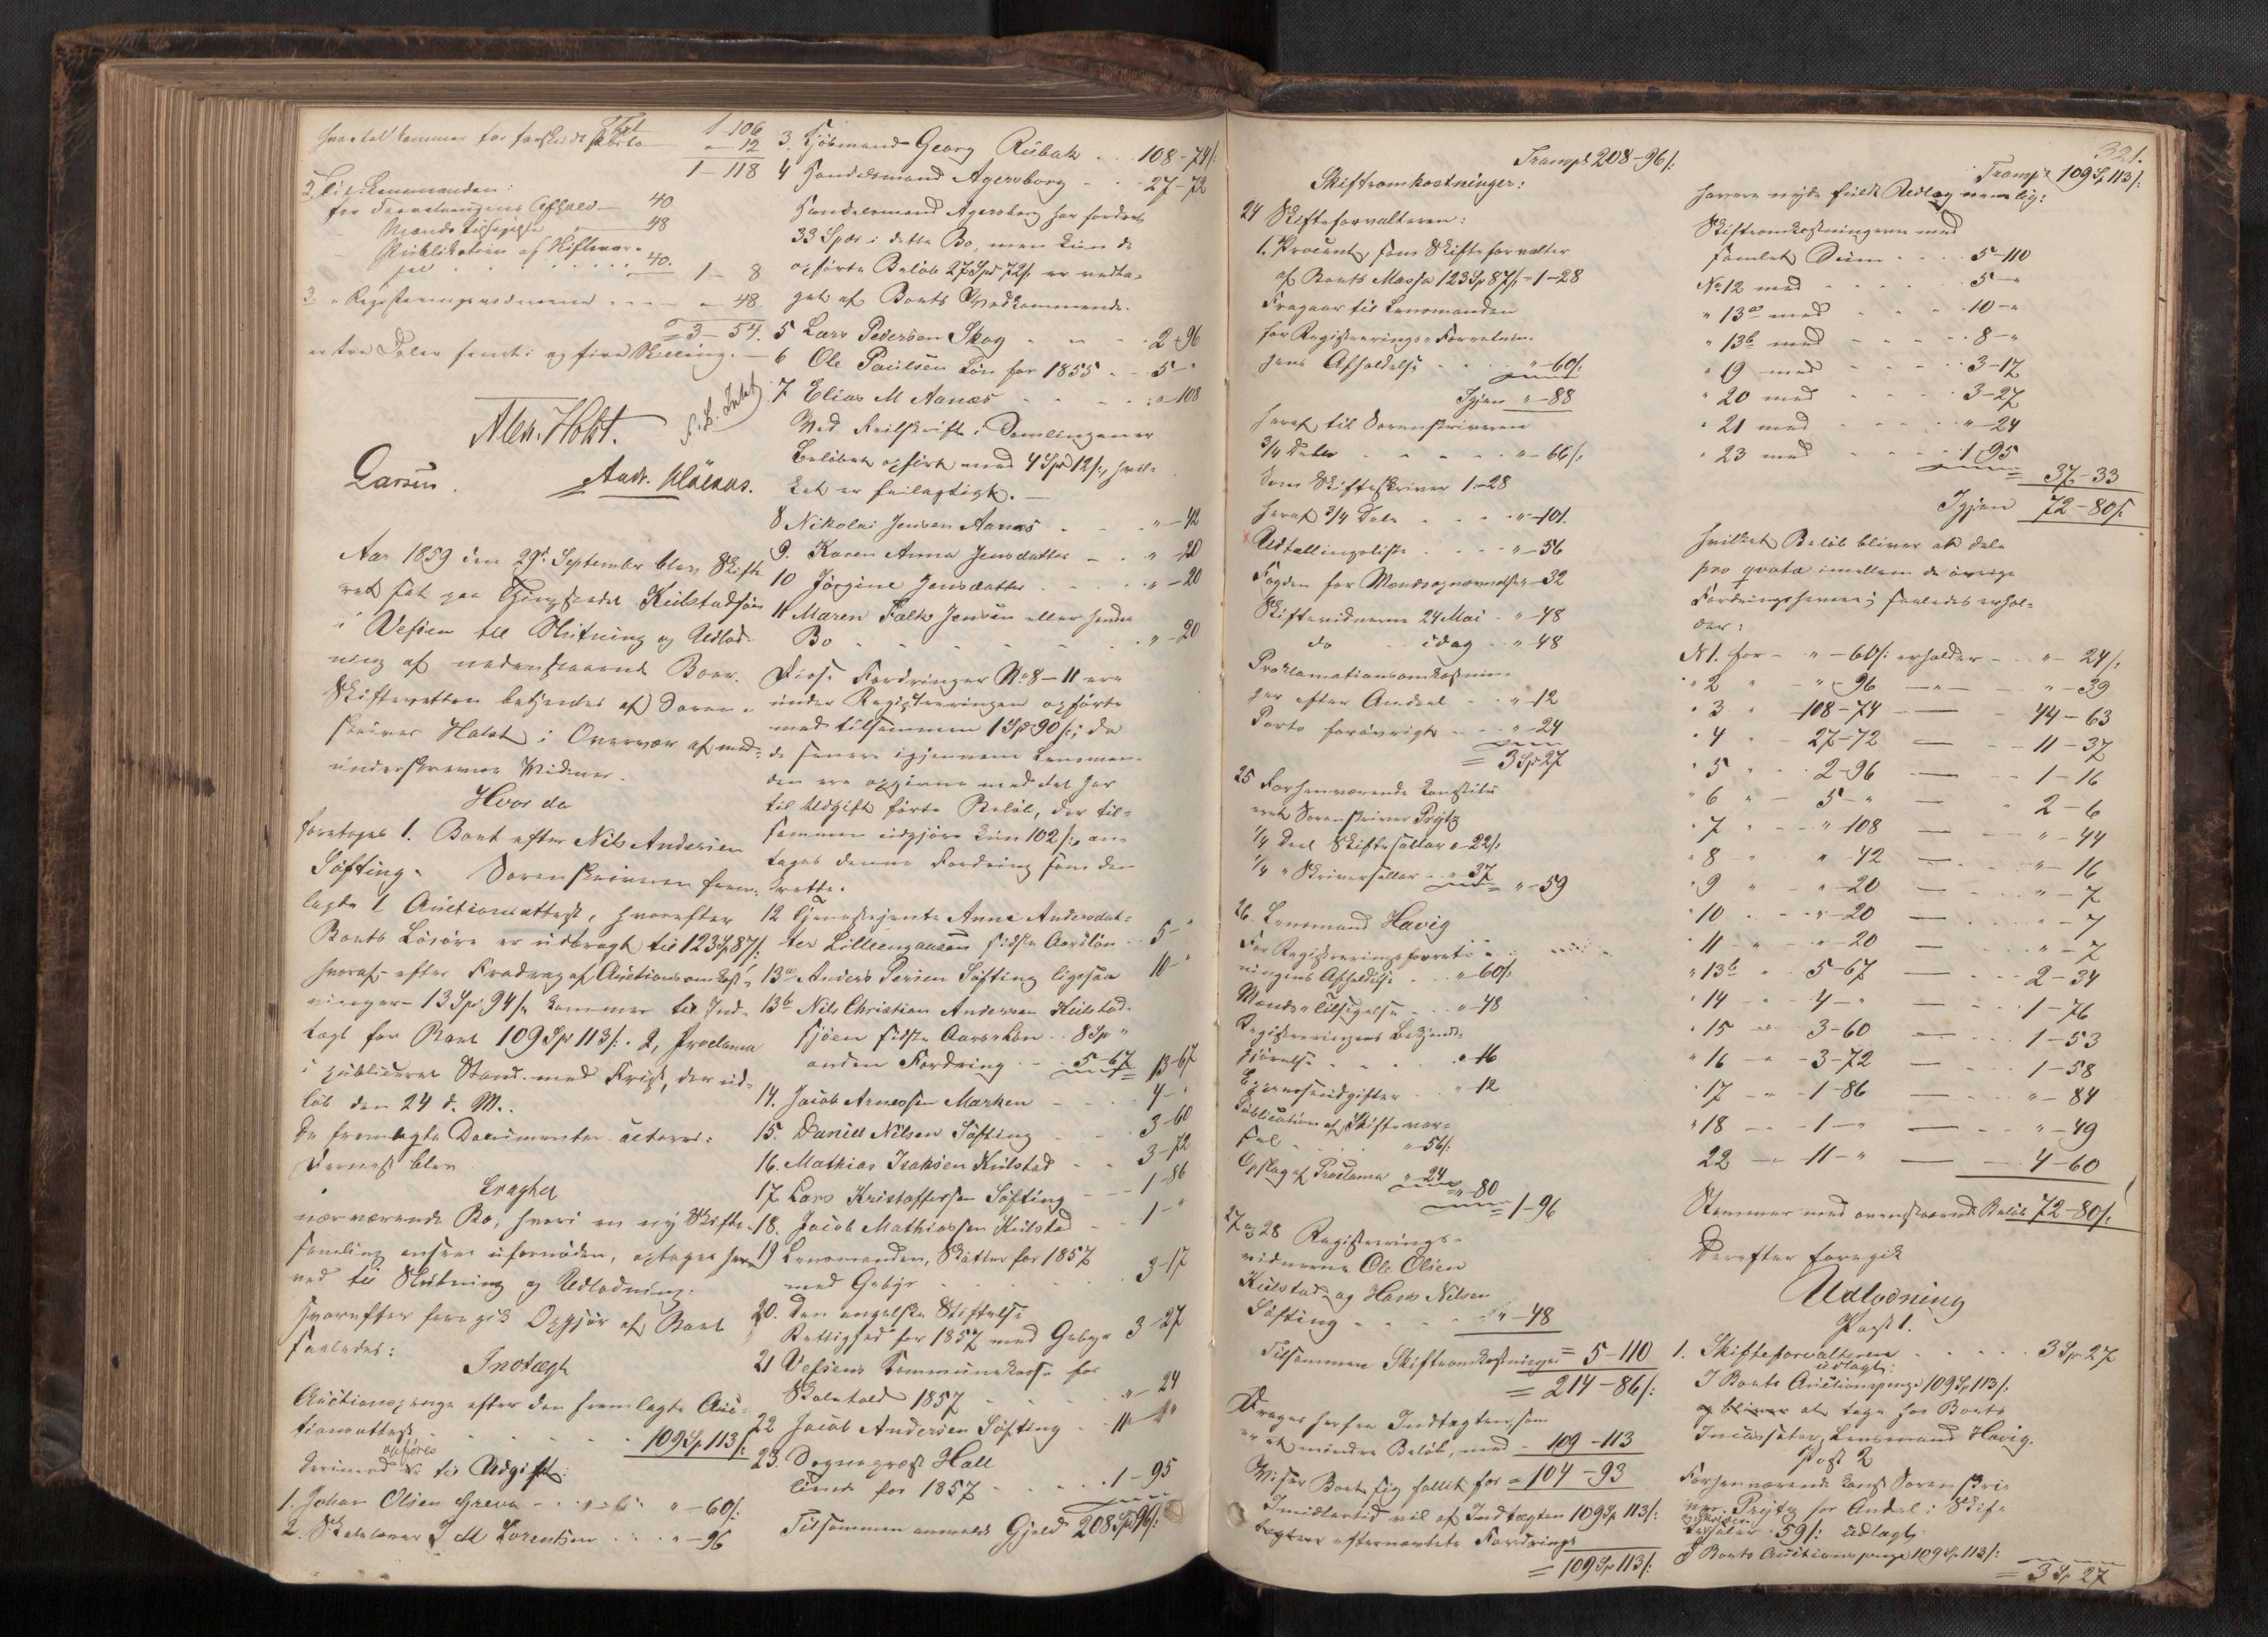 Tpt 1-106
hvortil kommer for forskudt Porto " 12
1-118
2, Til Lensmanden:
for Forretningens Afhold 40
Mænds Tilsigelse 48
Publikation af Skiftevar-
sel 40. 1- 8
3 " Registreringsvidnerne " 48
= 3- 54.
er tre Daler femti og fire Skilling.
Alex. Holst.
Larsen.
Aar 1859 den 29de September blev Skifte
ret sat paa Thingstedet Kulstadsjøen
i Vefsen til Slutning og Udlod-
ning af nedenstaaende Boer.
Skifteretten betjentes af Soren-
skriver Holst i Overvær af med-
underskrevne Vidner.
Hvor da
foretoges 1. Boet efter Nils Andersen
Søfting. Sorenskriveren frem-
lagde 1 Auctionsattest, hvorefter
Boets Løsøre er udbragt til 123 Sp 87 /:
hvoraf efter Fradrag af Auctionsomkost-
ninger 13 Sp 94 /: kommer til Ind-
tægt for Boet 109 Sp 113 /:. 2, Proclama
i publiceret Stand med Frist, der ud-
løb den 24 d. M..
De fremlagte Documenter acteres:
Dernæst blev
Eragtet
nærværende Bo, hvori en ny Skifte-
samling ansees ufornøden, optages her-
ved til Slutning og Udlodning.
Hvorefter foregik Opgjør af Boet
saaledes:
Indtægt
Auctionspenge efter den fremlagte Auc-
tionsattest 109 Sp 113 /:
Derimod opføres til Udgift:
1. Johan Olsen Greva " -60 /:
2. J M Lorentsen " -96
3. Kjøbmand Georg Rübak 108-74 /:
4 Handelsmand Agersborg 27-72
Handelsmand Agersborg har fordret
33 Spdr i dette Bo, men kun de
opførte Beløb 27 Spd 72 /: er vedta-
get af Boets Vedkommende.
5 Lars Pedersen Skog 2-96
6 Ole Paulsen Løn for 1855 5- "
7 Elias M Aanæs " 108
Ved Feilskrift i Samlingen er
Beløbet opført med 4 Spd 12 /:, hvil-
ket er feilagtigt.
8 Nikolai Jensen Aanæs " -42
9. Karen Anna Jensdatter " -20
10 Jørgine Jensdatter " -20
11 Maren Falk Jensen eller hendes
Bo " -20
Disse Fordringer No 8-11 ere
under Registreringen opførte
med tilsammen 1 Sp 90 /:; da
de senere igjennem Lensman-
den ere opgivne med det her
til Udgift førte Beløb, der til-
sammen udgjøre kun 102 /:, an-
tages denne Fordring som den
rette.
12 Tjenestejente Anne Andersdat-
ter Lillengaasen sidste Aarsløn 5- "
13a Anders Sørsen Søfting ligesaa 10- "
13b Nils Christian Andersen Kulstad-
sjøen sidste Aars Løn 8 Sp "
anden Fordring 5-67 13-67
14. Jacob Arnessen Marken 4- "
15. Daniel Nilsen Søfting 3-60
16. Mathias Isaksen Kulstad 3-72
17 Lars Kristoffersen Søfting 1-86
18. Jacob Mathiassen Kulstad 1- "
19 Lensmanden, Skatter for 1857
med Gebyr 3-17
20. Den angelske Stiftelse
Rettighed for 1857 med Gebyr 3-27
21 Vefsens Kommunekasse for
1857 " -24
22 Jacob Andersen Søfting 11 "
23. Sogneprest Hall
Tiende for 1857 1-95
Tilsammen anmeldt Gjeld 208 Sp 96 /:
321.
Transpt 208-96 /:
Skifteomkostninger:
24 Skifteforvalteren:
1. Procent, som Skifteforvalter
af Boets Massa 123 Sp 87 /: = 1-28
Fragaar til Lensmanden
for Registrerings-Forretnin-
gens Afholdelse " -60 /:
Igjen " -88
heraf til Sorenskriveren
3/4 Dele " -66 /:
Som Skifteskriver 1-28
heraf 3/4 Dele " -101.
Udtællingsliste " -56
Fogden for Mændsopnævnelse " -32
Skiftevidnerne 24 Mai " -48
do idag " -48
Proklamationsomkostnin-
ger efter Andeel " -12
Porto forøvrigt " -24
= 3 Sp 27
25 Forhenværende Konstitu-
eret Sorenskriver Prytz
1/4 Deel Skiftesallar " -22 /:
1/4 " Skriversallar " 37 " -59
26. Lensmand Havig
For Registreringsforret-
ningens Afholdelse " -60 /:
Mænds Tilsigelse " -48
Registreringens Bekjendt-
gjørelse " 16
Expressudgifter " -12
Publication af Skiftevar-
sel " -56 /:
Opslag af Proclama " 24 " -80
1-96
27 og 28 Registrerings-
vidnerne Ole Olsen
Kulstad og Hans Nilsen
Søfting " -48
Tilsammen Skifteomkostninger = 5-110
= 214-86 /:
Drages herfra Indtægten, som
er et mindre Beløb, med 109-113
Viser Boet sig fallit for = 104-93
Imidlertid vil af Indtægten 109 Sp 113 /:
efternævnte Fordrings-
= 109 Sp 113 /:
Transpt 109 Sp 113 /:
havere nyde fuldt Udlæg nemlig:
Skifteomkostningerne med
samlet Sum 5-110
No 12 med 5- "
" 13a med 10- "
" 13b med 8- "
" 19 med 3-17
" 20 med 3-27
" 21 med " -24
" 23 med 1-95
= 37-33
Igjen 72-80 /:
hvilket Beløb bliver at dele
pro qvota imellem de øvrige
Fordringshavere; saaledes erhol-
der:
N 1. for " -60 /: erholder " 24 /:
" 2 " " -96 — " — " -39
" 3 " 108-74 — 44-63
" 4 " 27-72 — 11-37
" 5 " 2-96 — 1-16
" 6 " 5- " — 2-6
" 7 " " 108 — " -44
" 8 " " 42 — " 16
" 9 " " -20 — " -7
" 10 " " -20 — " -7
" 11 " " -20 — " -7
" 13b " 5-67 — 2-34
" 14 " 4- " — 1-76
" 15 " 3-60 — 1-53
" 16 " 3-72 — 1-58
" 17 " 1-86 — " -84
" 18 " 1- " — " -49
22 " 11- " — 4-60
Stemmer med ovenstaaende Beløb 72-80 /:
Derefter foregik
Udlodning
Post 1.
1. Skifteforvalteren 3 Sp 27
udlagt:
I Boets Auctionspenge 109 Sp 113 /:
og bliver at tage hos Boets
Incassator, Lensmand Havig.
Post 2
Forhenværende const Sorenskri-
ver Prytz for Andeel i Skif-
59 /: udlagt:
I Boets Auctionspenge 109 Sp 113 /:
= 3 Sp 27